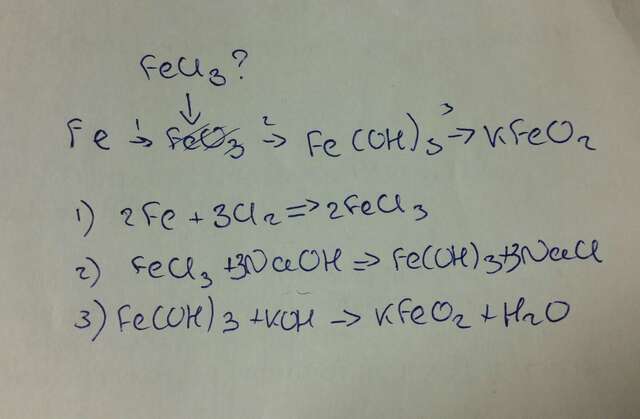 FeCl3?
↓
Fe 1→ FeO3 2→ Fe(OH)3 3→ KFeO2
1) 2Fe + 3Cl2 => 2FeCl3
2) FeCl3 + 3NaOH => Fe(OH)3 + 3NaCl
3) Fe(OH)3 + KOH → KFeO2 + H2O